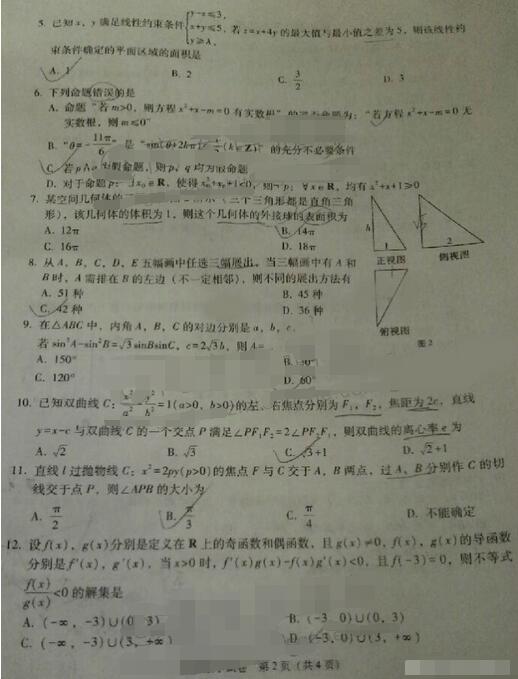 5. 已知x, y满足线性约束条件{y-x≤3, x+y≤5, y≥λ, 若z=x+4y的最大值与最小值之差为5, 则该线性约
束条件确定的平面区域的面积是
A. 1 B. 2 C. 3/2 D. 3
6. 下列命题错误的是
A. 命题"若m>0, 则方程x²+x-m=0有实数根"的 命题为: "若方程x²+x-m=0无
实数根, 则m≤0"
B. "θ=-11π/6"是" (θ+2kπ) (k∈Z)"的充分不必要条件
C. 若p∧ 假命题, 则p, q均为假命题
D. 对于命题p: ∃x₀∈R, 使得x₀²+x₀+1<0, 则¬p: ∀x∈R, 均有x²+x+1≥0
7. 某空间几何体的 (三个三角形都是直角三角
形), 该几何体的体积为1, 则这个几何体的外接球的表面积为
A. 12π B. 14π
C. 16π D. 18π
h 1 2
正视图 侧视图
俯视图
图2
8. 从A、B、C、D、E五幅画中任选三幅展出, 当三幅画中有A和
B时, A需排在B的左边(不一定相邻), 则不同的展出方法有
A. 51种 B. 45种
C. 42种 D. 36种
9. 在△ABC中, 内角A, B, C的对边分别是a, b, c.
若sin²A-sin²B=√3sinBsinC, c=2√3b, 则A=
A. 150° B.
C. 120° D. 60°
10. 已知双曲线C: x²/a²-y²/b²=1(a>0, b>0)的左、右焦点分别为F₁, F₂, 焦距为2c, 直线
y=x-c与双曲线C的一个交点P满足∠PF₁F₂=2∠PF₂F₁, 则双曲线的离心率e为
A. √2 B. √3 C. √3+1 D. √2+1
11. 直线l过抛物线C: x²=2py(p>0)的焦点F与C交于A, B两点, 过A、B分别作C的切
线交于点P, 则∠APB的大小为
A. π/2 B. π/3 C. π/4 D. 不能确定
12. 设f(x), g(x)分别是定义在R上的奇函数和偶函数, 且g(x)≠0, f(x), g(x)的导函数
分别是f'(x), g'(x), 当x>0时, f'(x)g(x)-f(x)g'(x)<0, 且f(-3)=0, 则不等式
f(x)/g(x)<0的解集是
A. (-∞, -3)∪(0, 3) B. (-3, 0)∪(0, 3)
C. (-∞, -3)∪(3, +∞) D. (-3, 0)∪(3, +∞)
第2页(共4页)